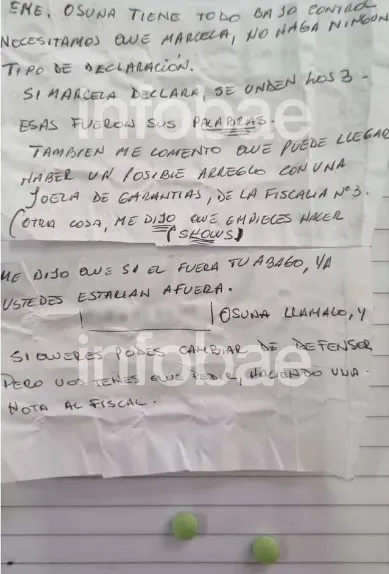 EME. OSUNA TIENE TODO BAJO CONTROL
NECESITAMOS QUE MARCELA, NO HAGA NINGUN
TIPO DE DECLARACIÓN.
SI MARCELA DECLARA, SE UNDEN LOS 3 -
ESAS FUERON SUS PALABRAS.
infobae
TAMBIEN ME COMENTO QUE PUEDE LLEGAR
HABER UN POSIBLE ARREGLO CON UNA
JUEZA DE GARANTIAS, DE LA FISCALIA Nº3.
(OTRA COSA, ME DIJO QUE EMPIECES HACER
(SHOWS)
ME DIJO QUE SI EL FUERA TU ABAGO, YA
USTEDES ESTARIAN AFUERA.
OSUNA LLAMALO, Y
SI QUERES PODES CAMBIAR DE DEFENSOR
infobae
PERO VOS TENES QUE PEDIR, HACIENDO UNA.
NOTA AL FISCAL.